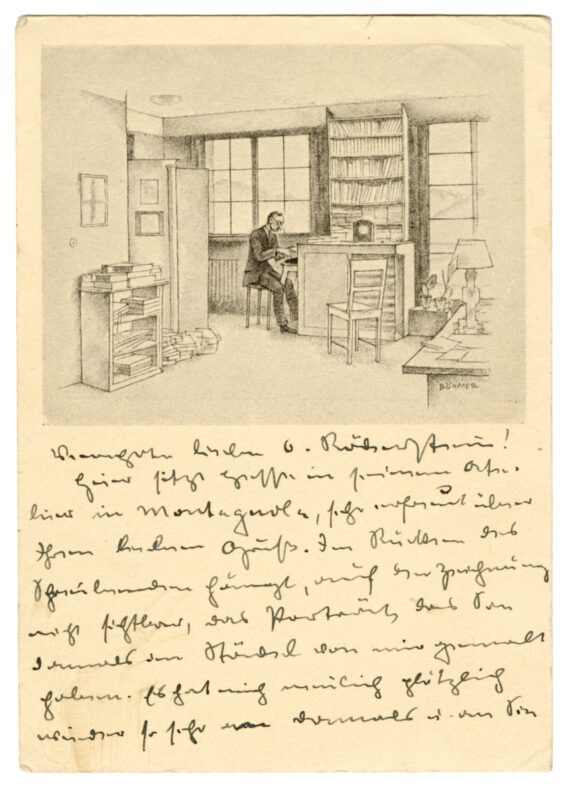 BÖHMER
Verehrte liebe O. Röderstein!
Hier sitzt Hesse in seinem Ate-
lier in Montagnola, sehr erfreut über
Ihren lieben Gruß. Im Rücken des
Schreibenden hängt, auf der Zeichnung
nicht sichtbar, das Porträt das Sie
damals im Städel von mir gemalt
haben. Es hat mich neulich plötzlich
wieder so sehr an damals u. an Sie